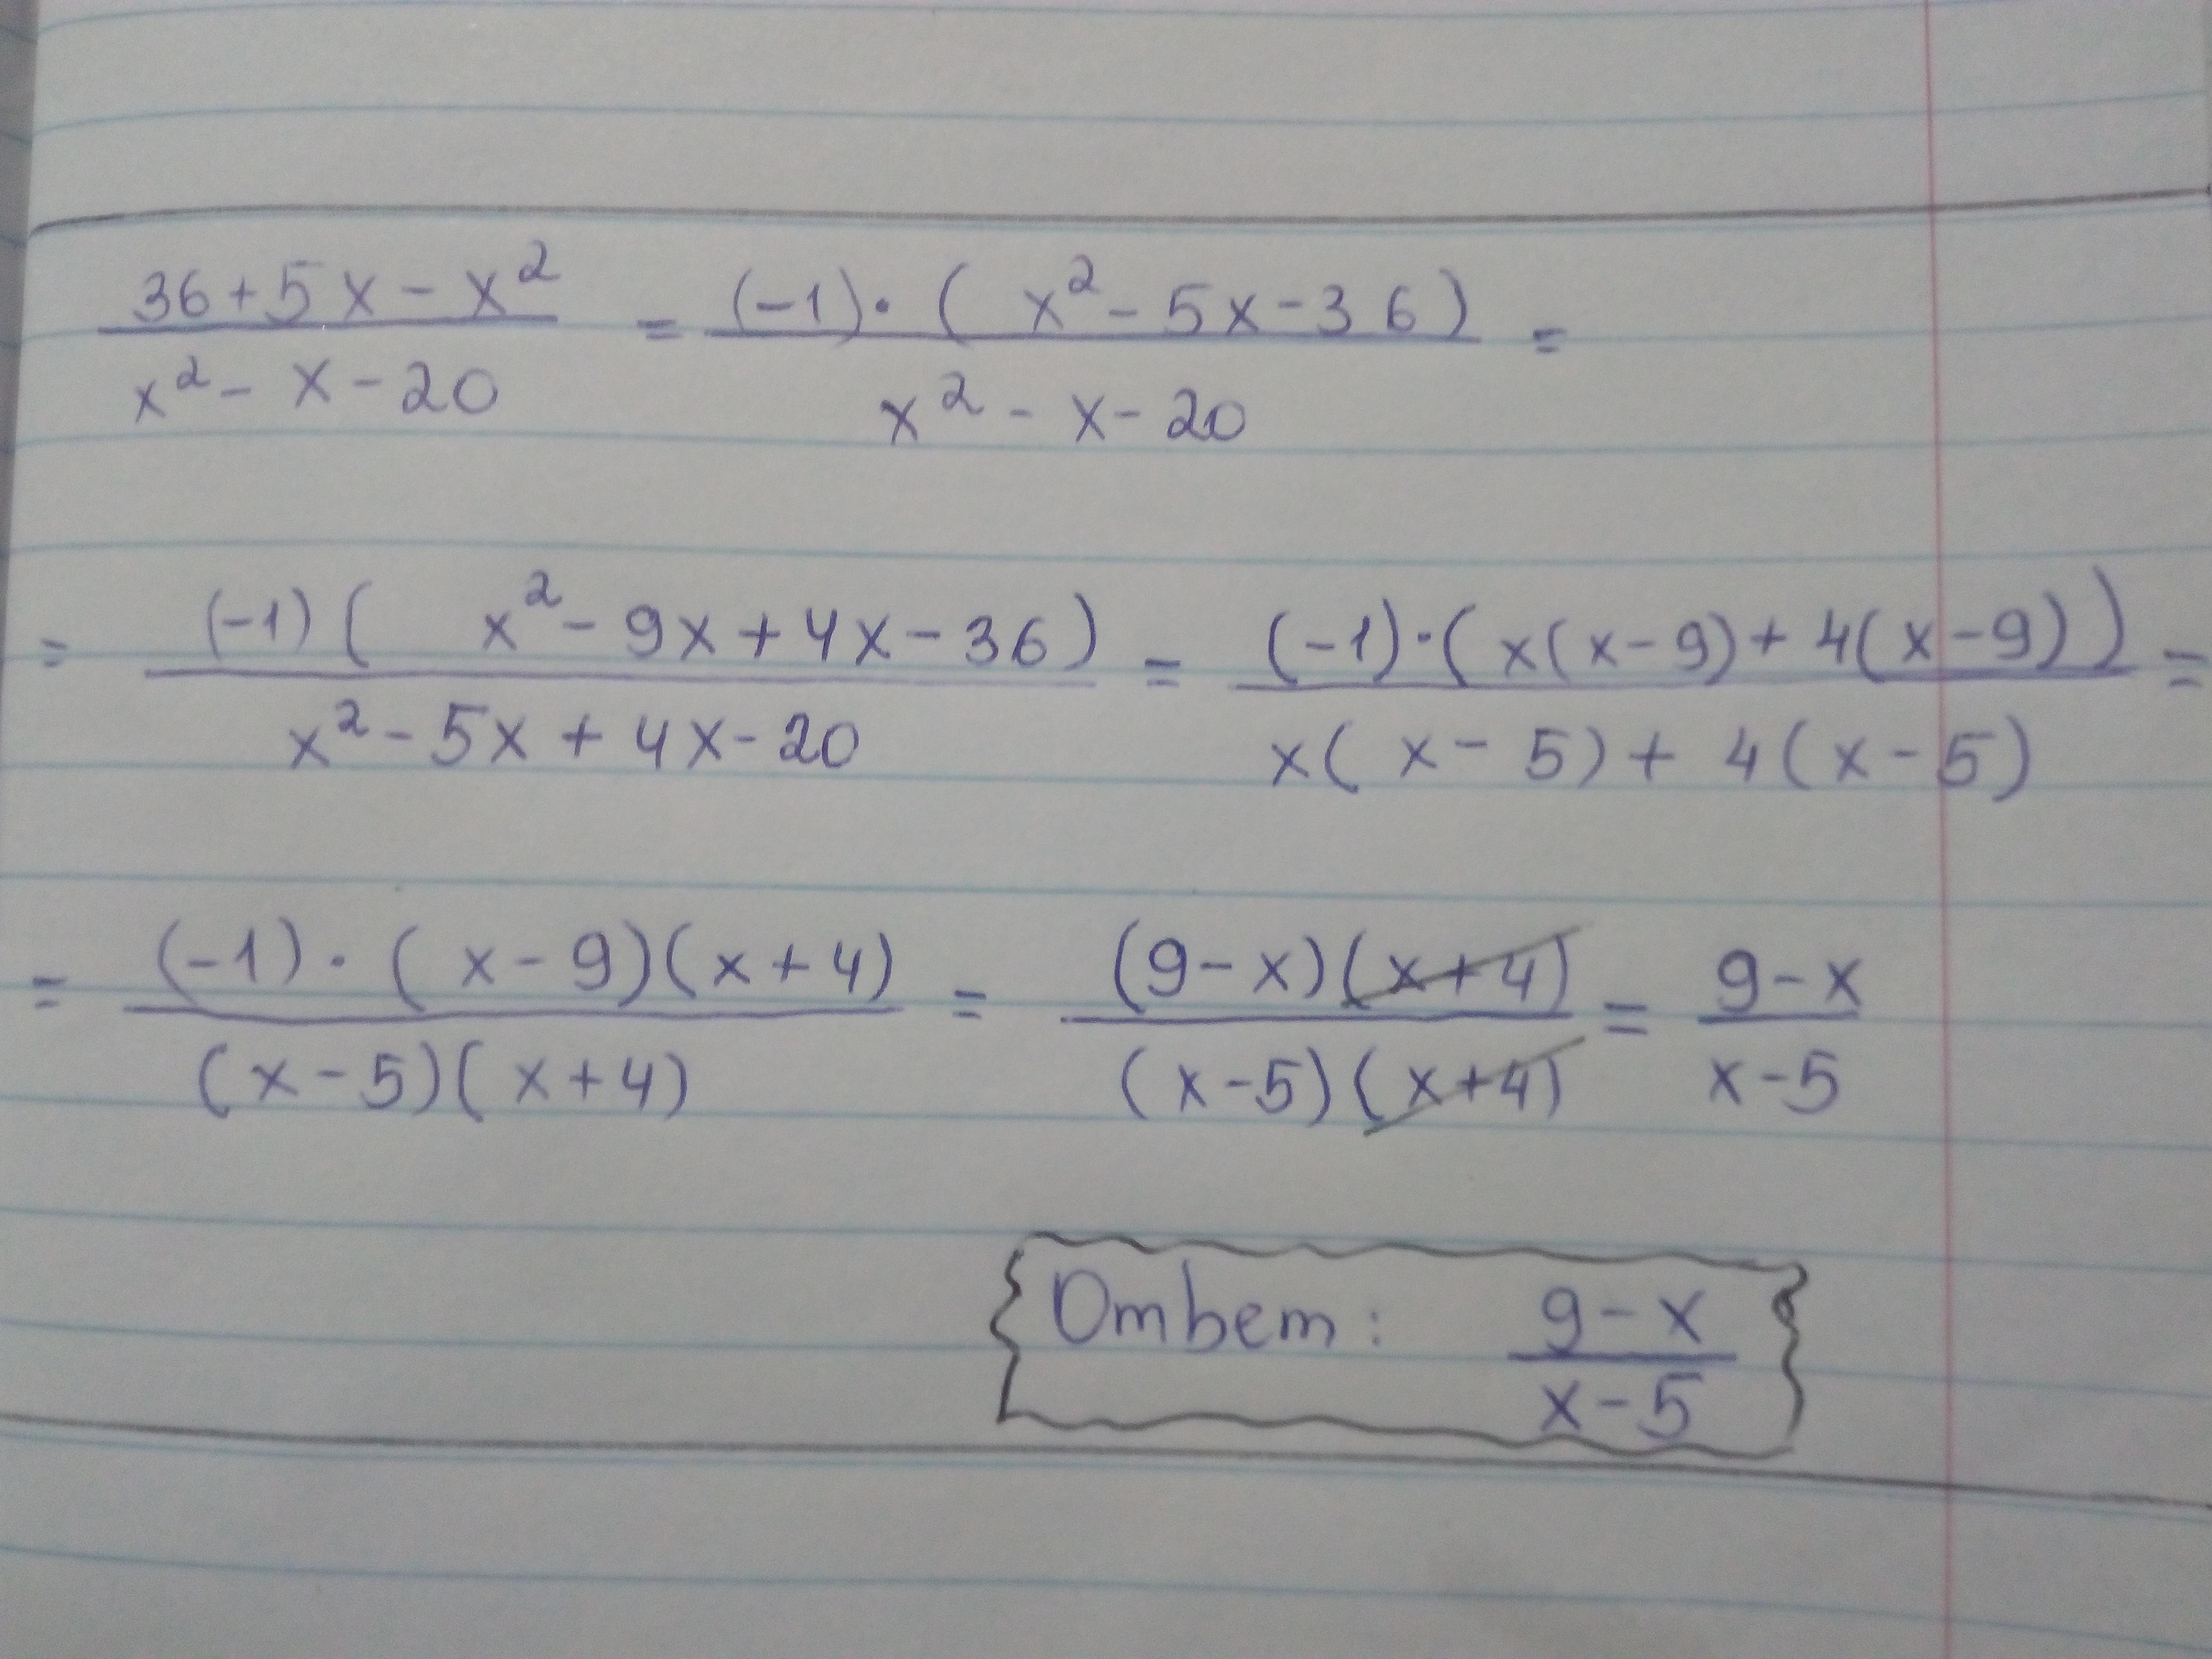 (36+5x-x²)/(x²-x-20) = ((-1)·(x²-5x-36))/(x²-x-20) =
= ((-1)(x²-9x+4x-36))/(x²-5x+4x-20) = ((-1)·(x(x-9)+4(x-9)))/(x(x-5)+4(x-5)) =
= ((-1)·(x-9)(x+4))/((x-5)(x+4)) = ((9-x)(x+4))/((x-5)(x+4)) = (9-x)/(x-5)
Ответ: (9-x)/(x-5)